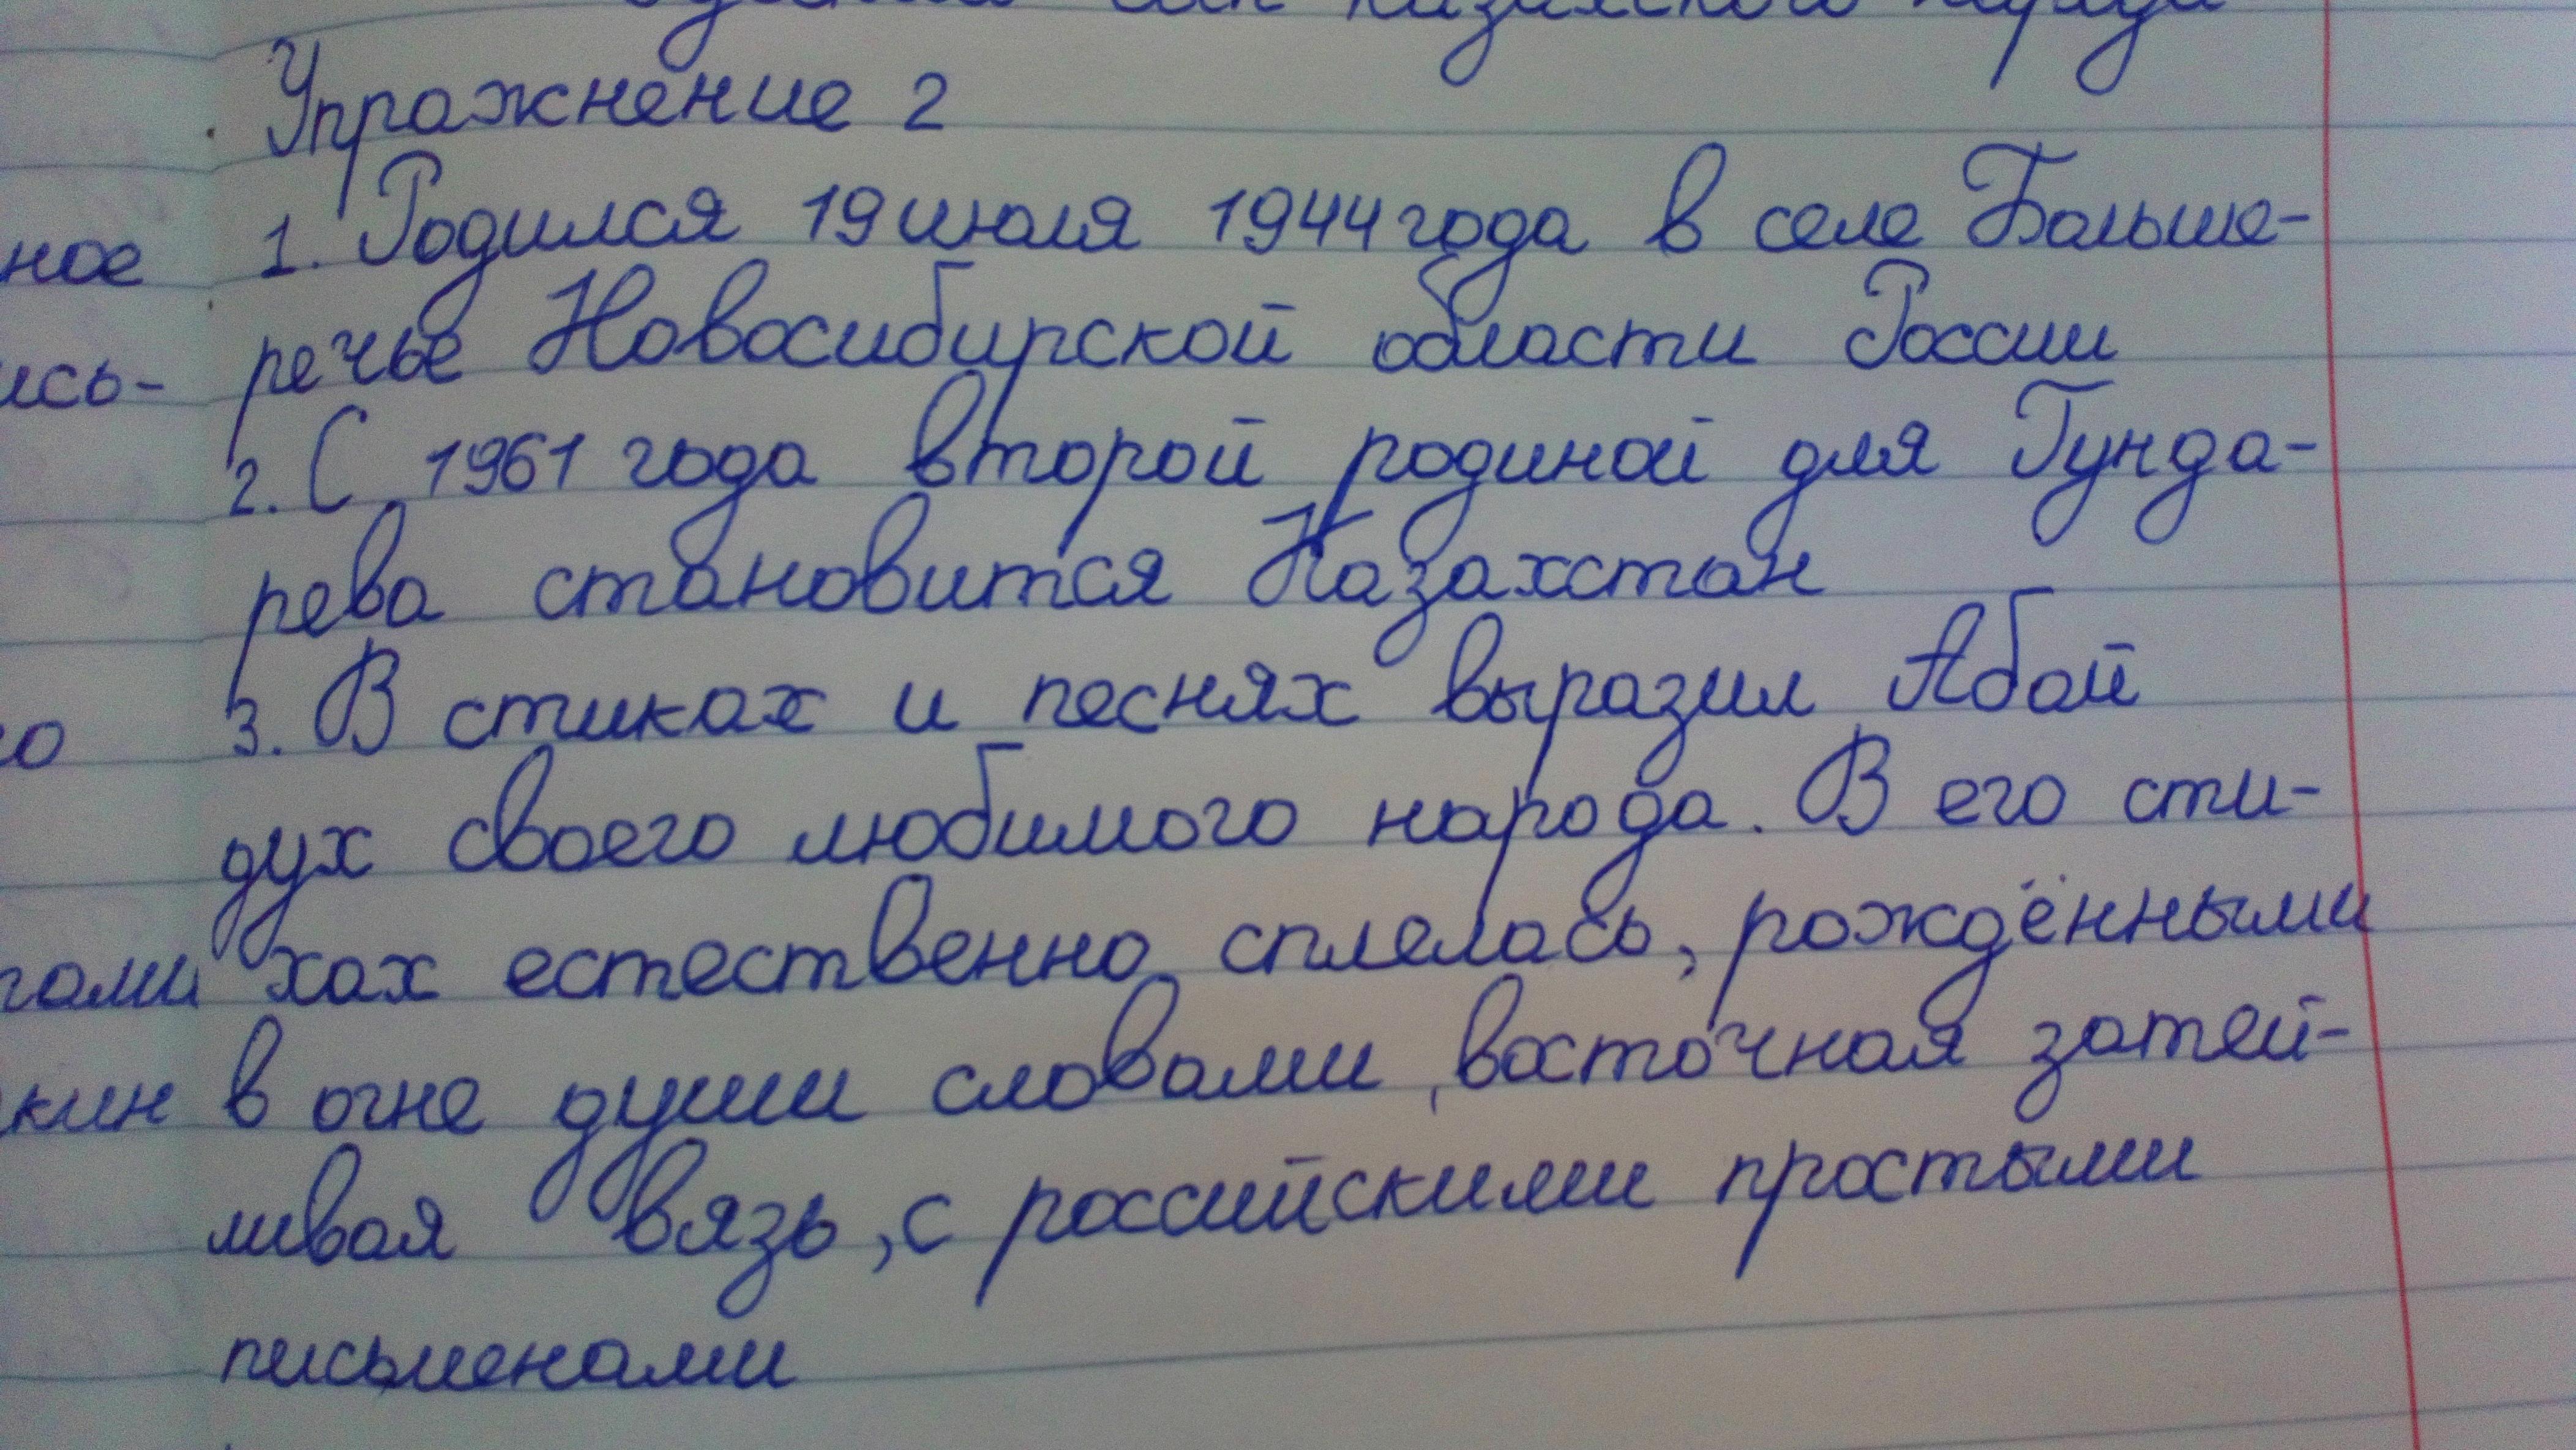 сын казахского народа
Упражнение 2
ное 1. Родился 19 июля 1944 года в селе Больше-
ись- речье Новосибирской области России
2. С 1961 года второй родиной для Гунда-
рева становится Казахстан
го 3. В стихах и песнях выразил Абай
дух своего любимого народа. В его сти-
гами хах естественно сплелась, рождёнными
кин в огне души словами, восточная затей-
ливая вязь, с российскими простыми
письменами